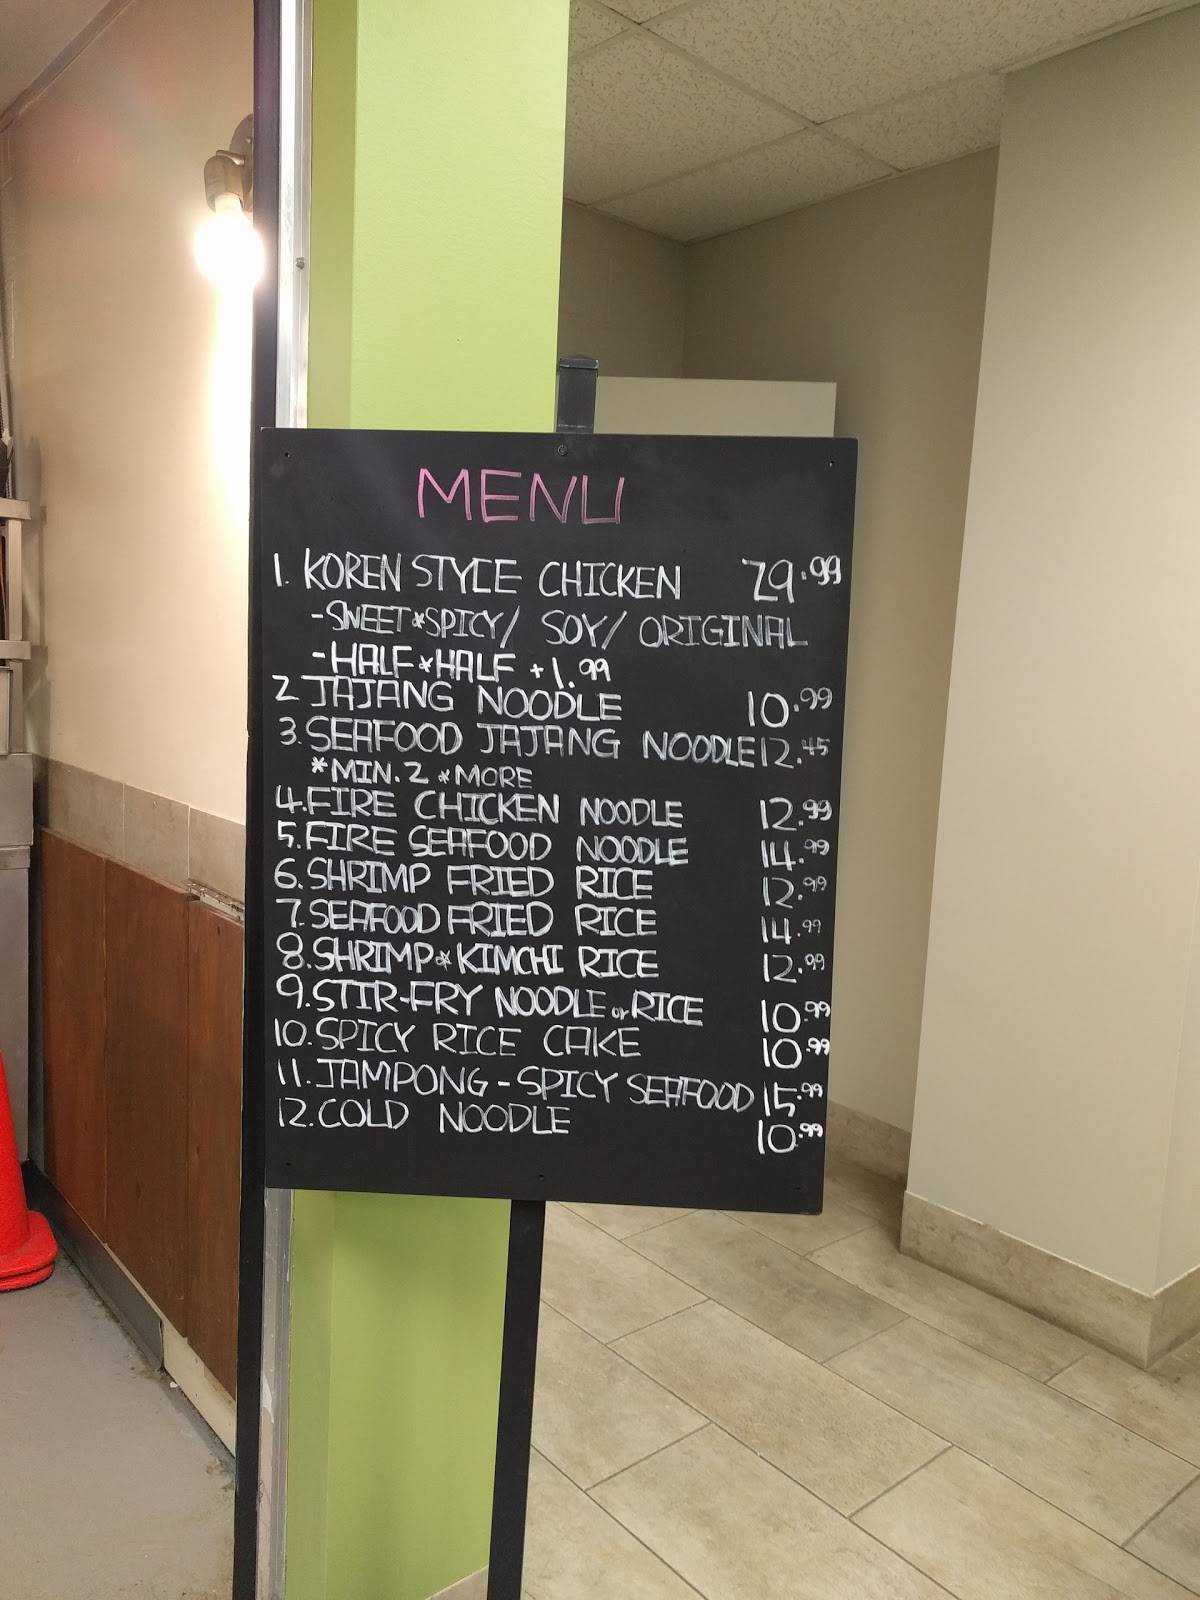 MENU
1. KOREN STYLE CHICKEN 29.99
-SWEET&SPICY/ SOY/ ORIGINAL
-HALF&HALF +1.99
2 JAJANG NOODLE 10.99
3. SEAFOOD JAJANG NOODLE 12.45
*MIN. 2 & MORE
4. FIRE CHICKEN NOODLE 12.99
5. FIRE SEAFOOD NOODLE 14.99
6. SHRIMP FRIED RICE 12.99
7. SEAFOOD FRIED RICE 14.99
8. SHRIMP & KIMCHI RICE 12.99
9. STIR-FRY NOODLE or RICE 10.99
10. SPICY RICE CAKE 10.99
11. JAMPONG - SPICY SEAFOOD 15.99
12. COLD NOODLE 10.99